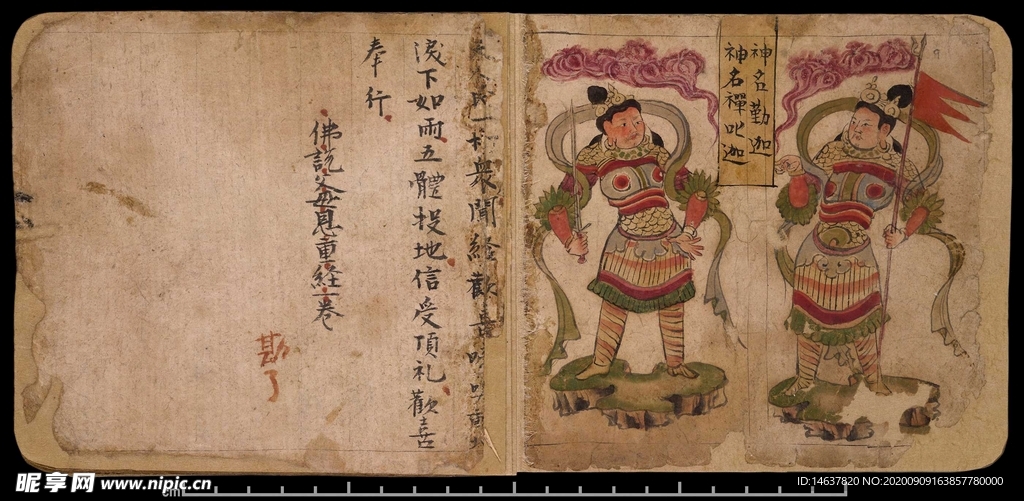 神名勤迦
神名禪叱迦
衆聞經歡喜
淚下如雨五體投地信受頂礼歡喜
奉行
佛說父母恩重経一卷
勘了
cm
昵享网 www.nipic.cn
ID:14637820 NO:20200909163857780000